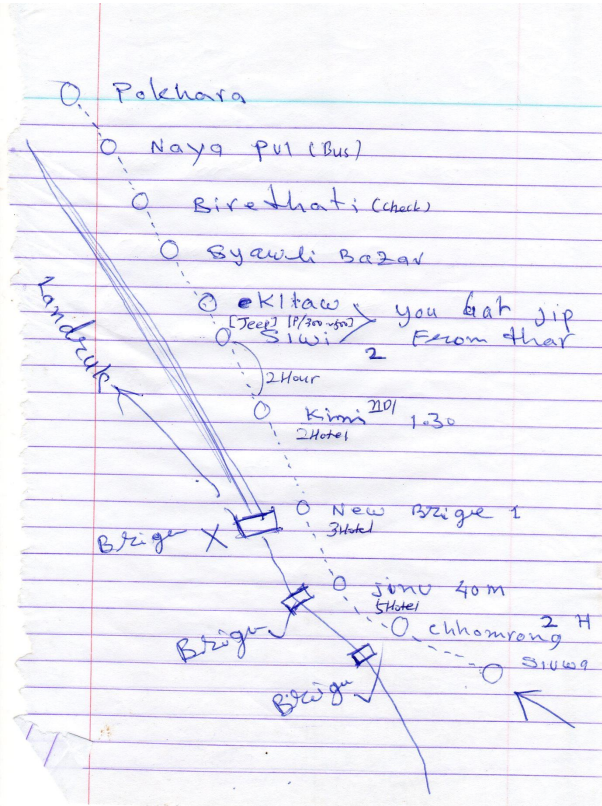 Pokhara
Naya Pul (Bus)
Birethati (check)
Syawli Bazar
Kltaw
[Jeep] [P/300-500]
Siwi
you Gat Jip
From thar
2
Landruk
2 Hour
Kimi 1.30
2 Hotel
New Brige 1
3 Hotel
Brige X
Jinu 40 m
5 Hotel
Chhomrong 2 H
Siuwa
Brige ✓
Brige ✓